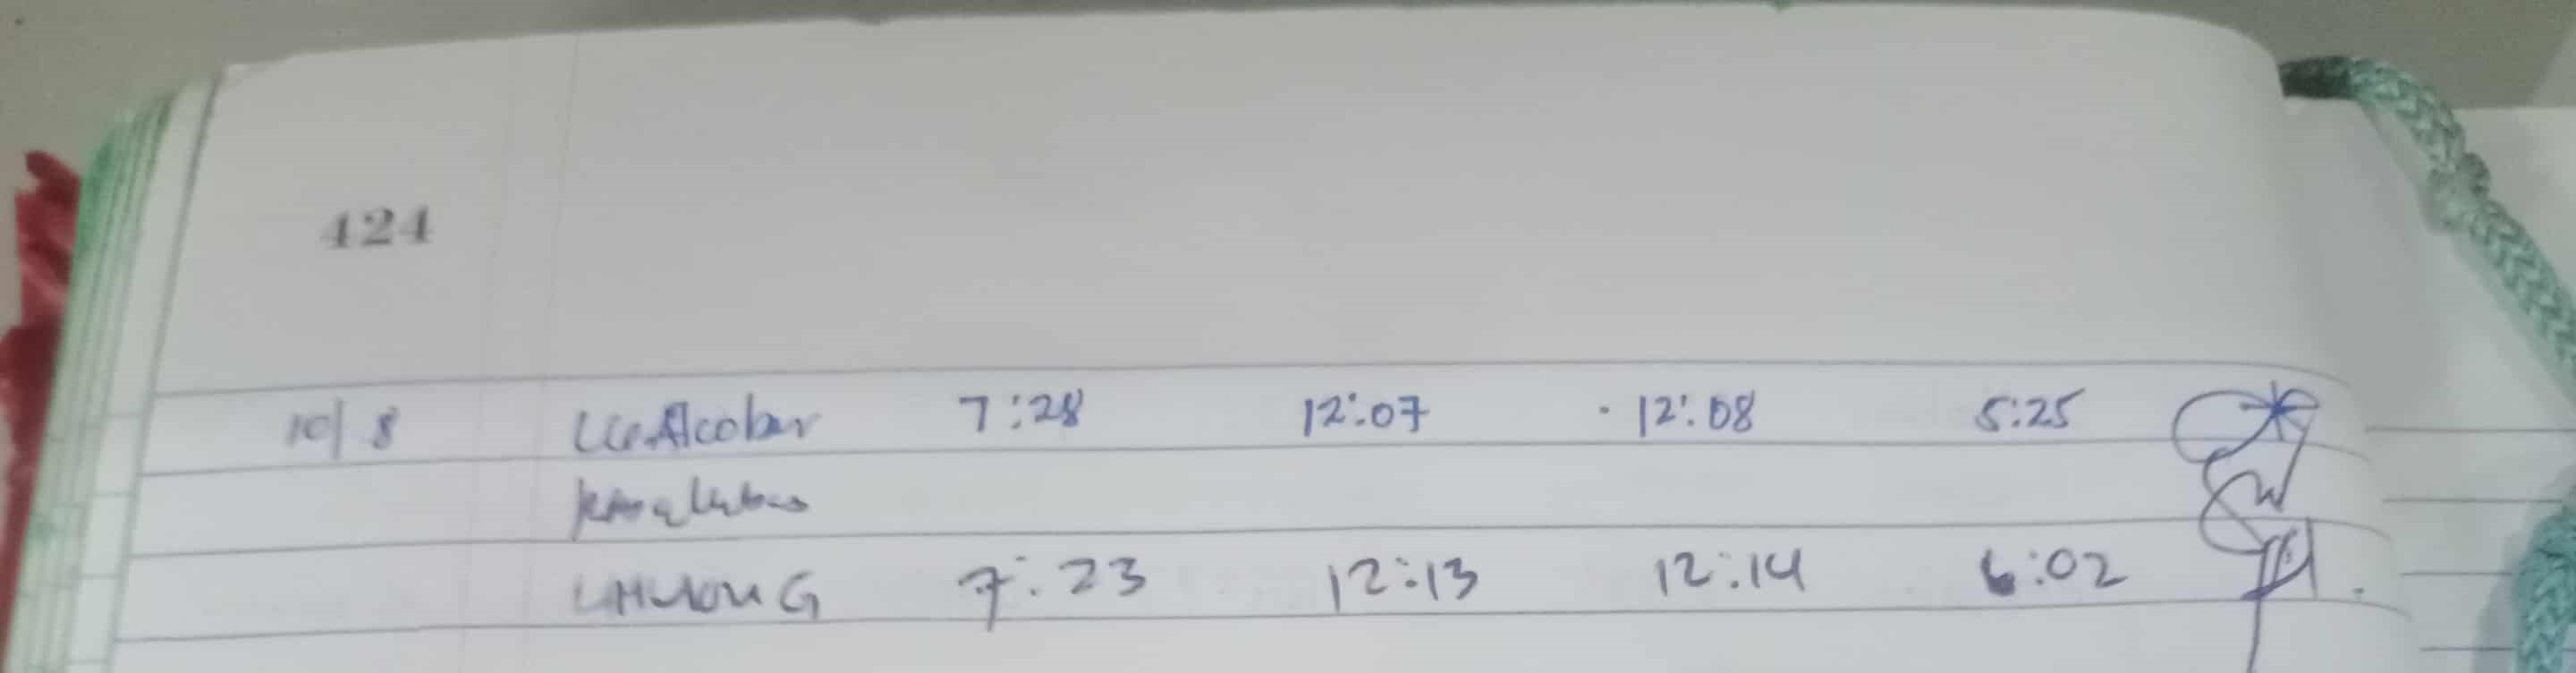 424
10/8 LCAlcober 7:28 12:07 12:08 5:25
7:23 12:13 12:14 6:02